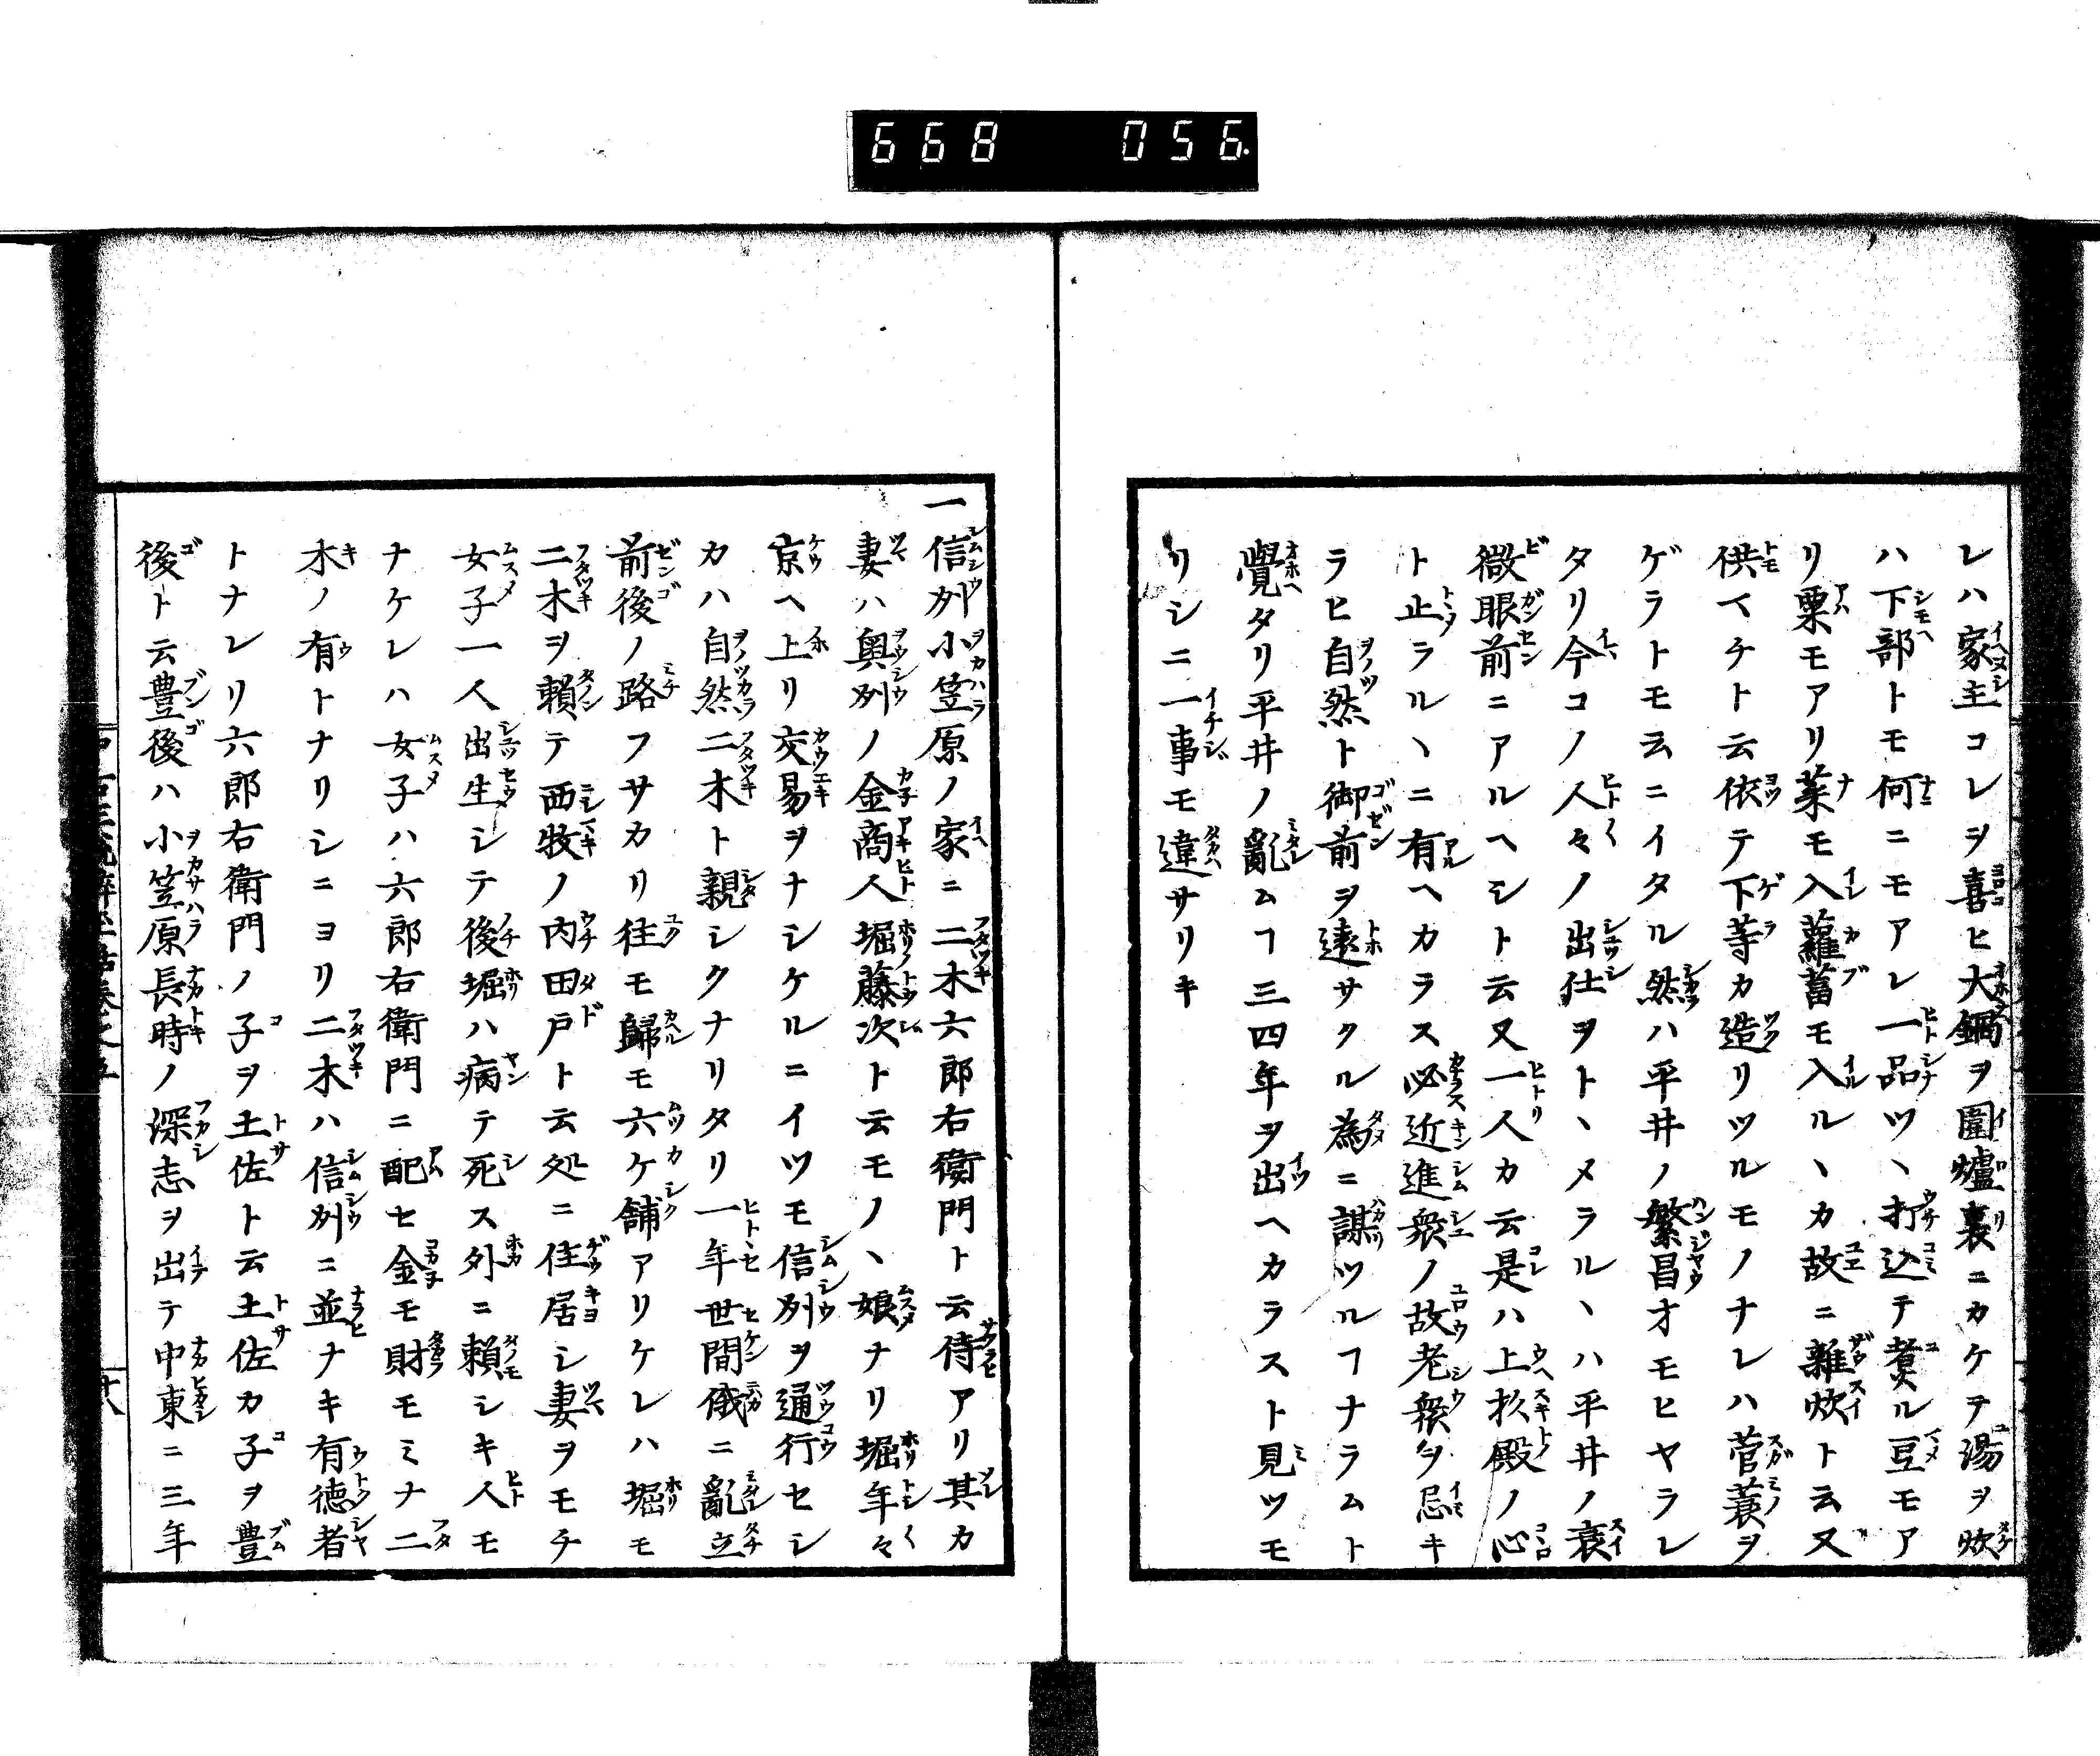 668 056
レハ家主コレヲ喜ヒ大鍋ヲ圍爐裏ニカケテ湯ヲ炊
ハ下部トモ何ニモアレ一品ツヽ打込テ煑ル豆モア
リ粟モアリ菜モ入蘿蔔モ入ルヽカ故ニ雜炊ト云又
供マチト云依テ下等カ造リツルモノナレハ菅蓑ヲ
ゲラトモ云ニイタル然ハ平井ノ繁昌オモヒヤラレ
タリ今コノ人々ノ出仕ヲトヽメラルヽハ平井ノ衰
微眼前ニアルヘシト云又一人カ云是ハ上杦殿ノ心
ト止ラルヽニ有ヘカラス必近進衆ノ故老衆ヲ忌キ
ラヒ自然ト御前ヲ遠サクル為ニ謀ツルヿナラムト
覺タリ平井ノ亂ムヿ三四年ヲ出ヘカラスト見ツモ
リシニ一事モ違サリキ
一信刕小笠原ノ家ニ二木六郎右衛門ト云侍アリ其カ
妻ハ奥刕ノ金商人堀藤次ト云モノヽ娘ナリ堀年々
京ヘ上リ交易ヲナシケルニイツモ信刕ヲ通行セシ
カハ自然二木ト親シクナリタリ一年世間俄ニ亂立
前後ノ路フサカリ往モ歸モ六ケ舗アリケレハ堀モ
二木ヲ頼テ西牧ノ内田戸ト云処ニ住居シ妻ヲモチ
女子一人出生シテ後堀ハ病テ死ス外ニ頼シキ人モ
ナケレハ女子ハ六郎右衛門ニ配セ金モ財モミナ二
木ノ有トナリシニヨリ二木ハ信刕ニ並ナキ有徳者
トナレリ六郎右衛門ノ子ヲ土佐ト云土佐カ子ヲ豊
後ト云豊後ハ小笠原長時ノ深志ヲ出テ中東ニ三年
十八